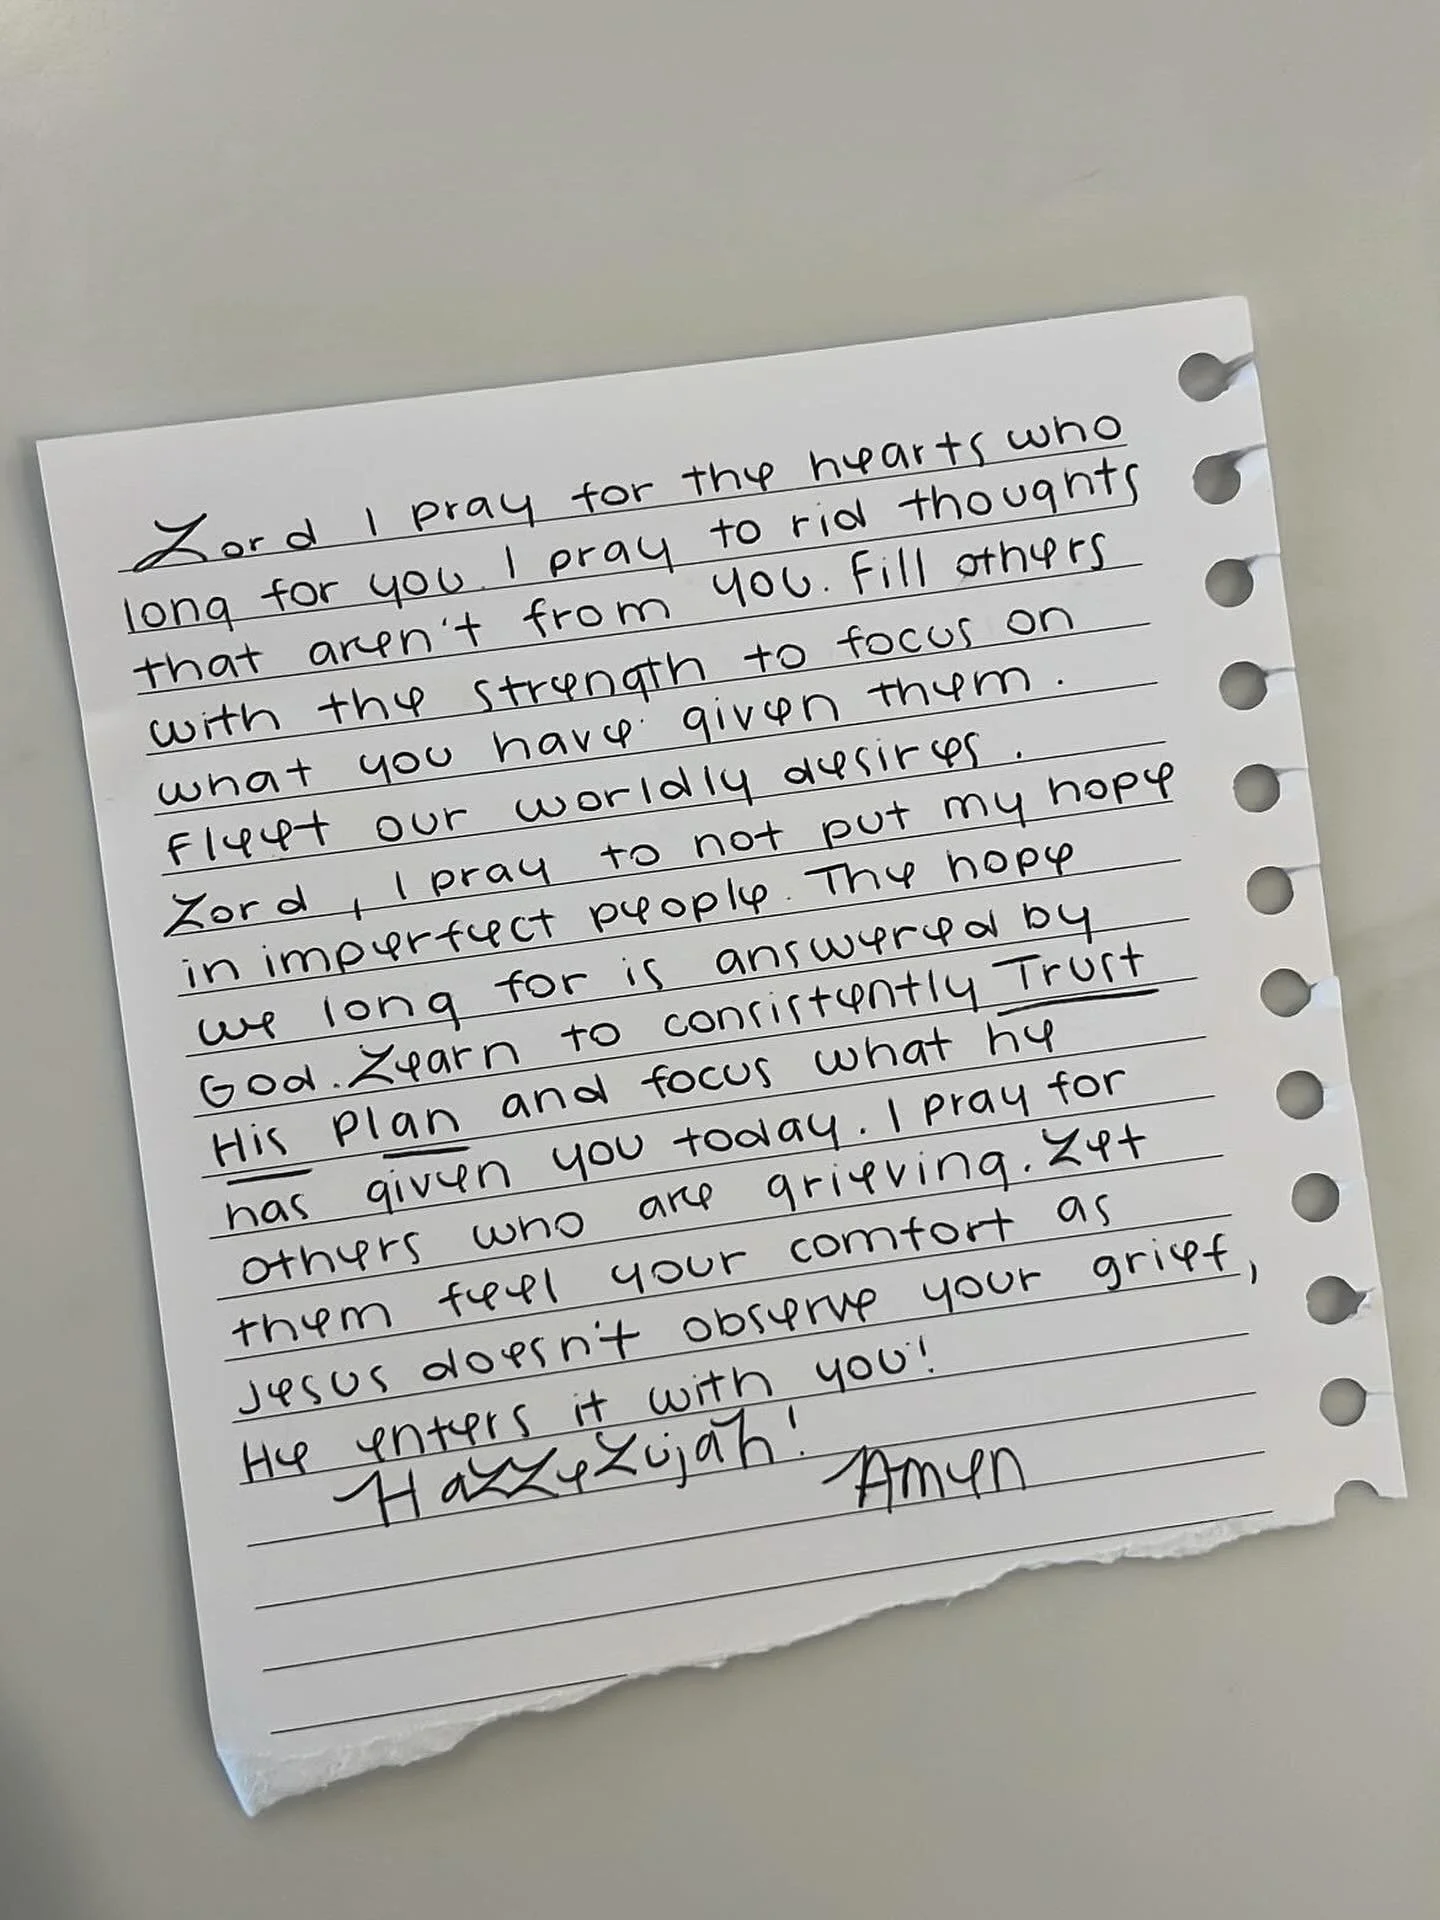 Lord I pray for the hearts who
long for you. I pray to rid thoughts
that aren't from you. Fill others
with the strength to focus on
what you have given them.
Fleet our worldly desires.
Lord, I pray to not put my hope
in imperfect people. The hope
we long for is answered by
God. Learn to consistently Trust
His Plan and focus what he
has given you today. I pray for
others who are grieving. Let
them feel your comfort as
Jesus doesn't observe your grief,
He enters it with you!
Hallelujah! Amen